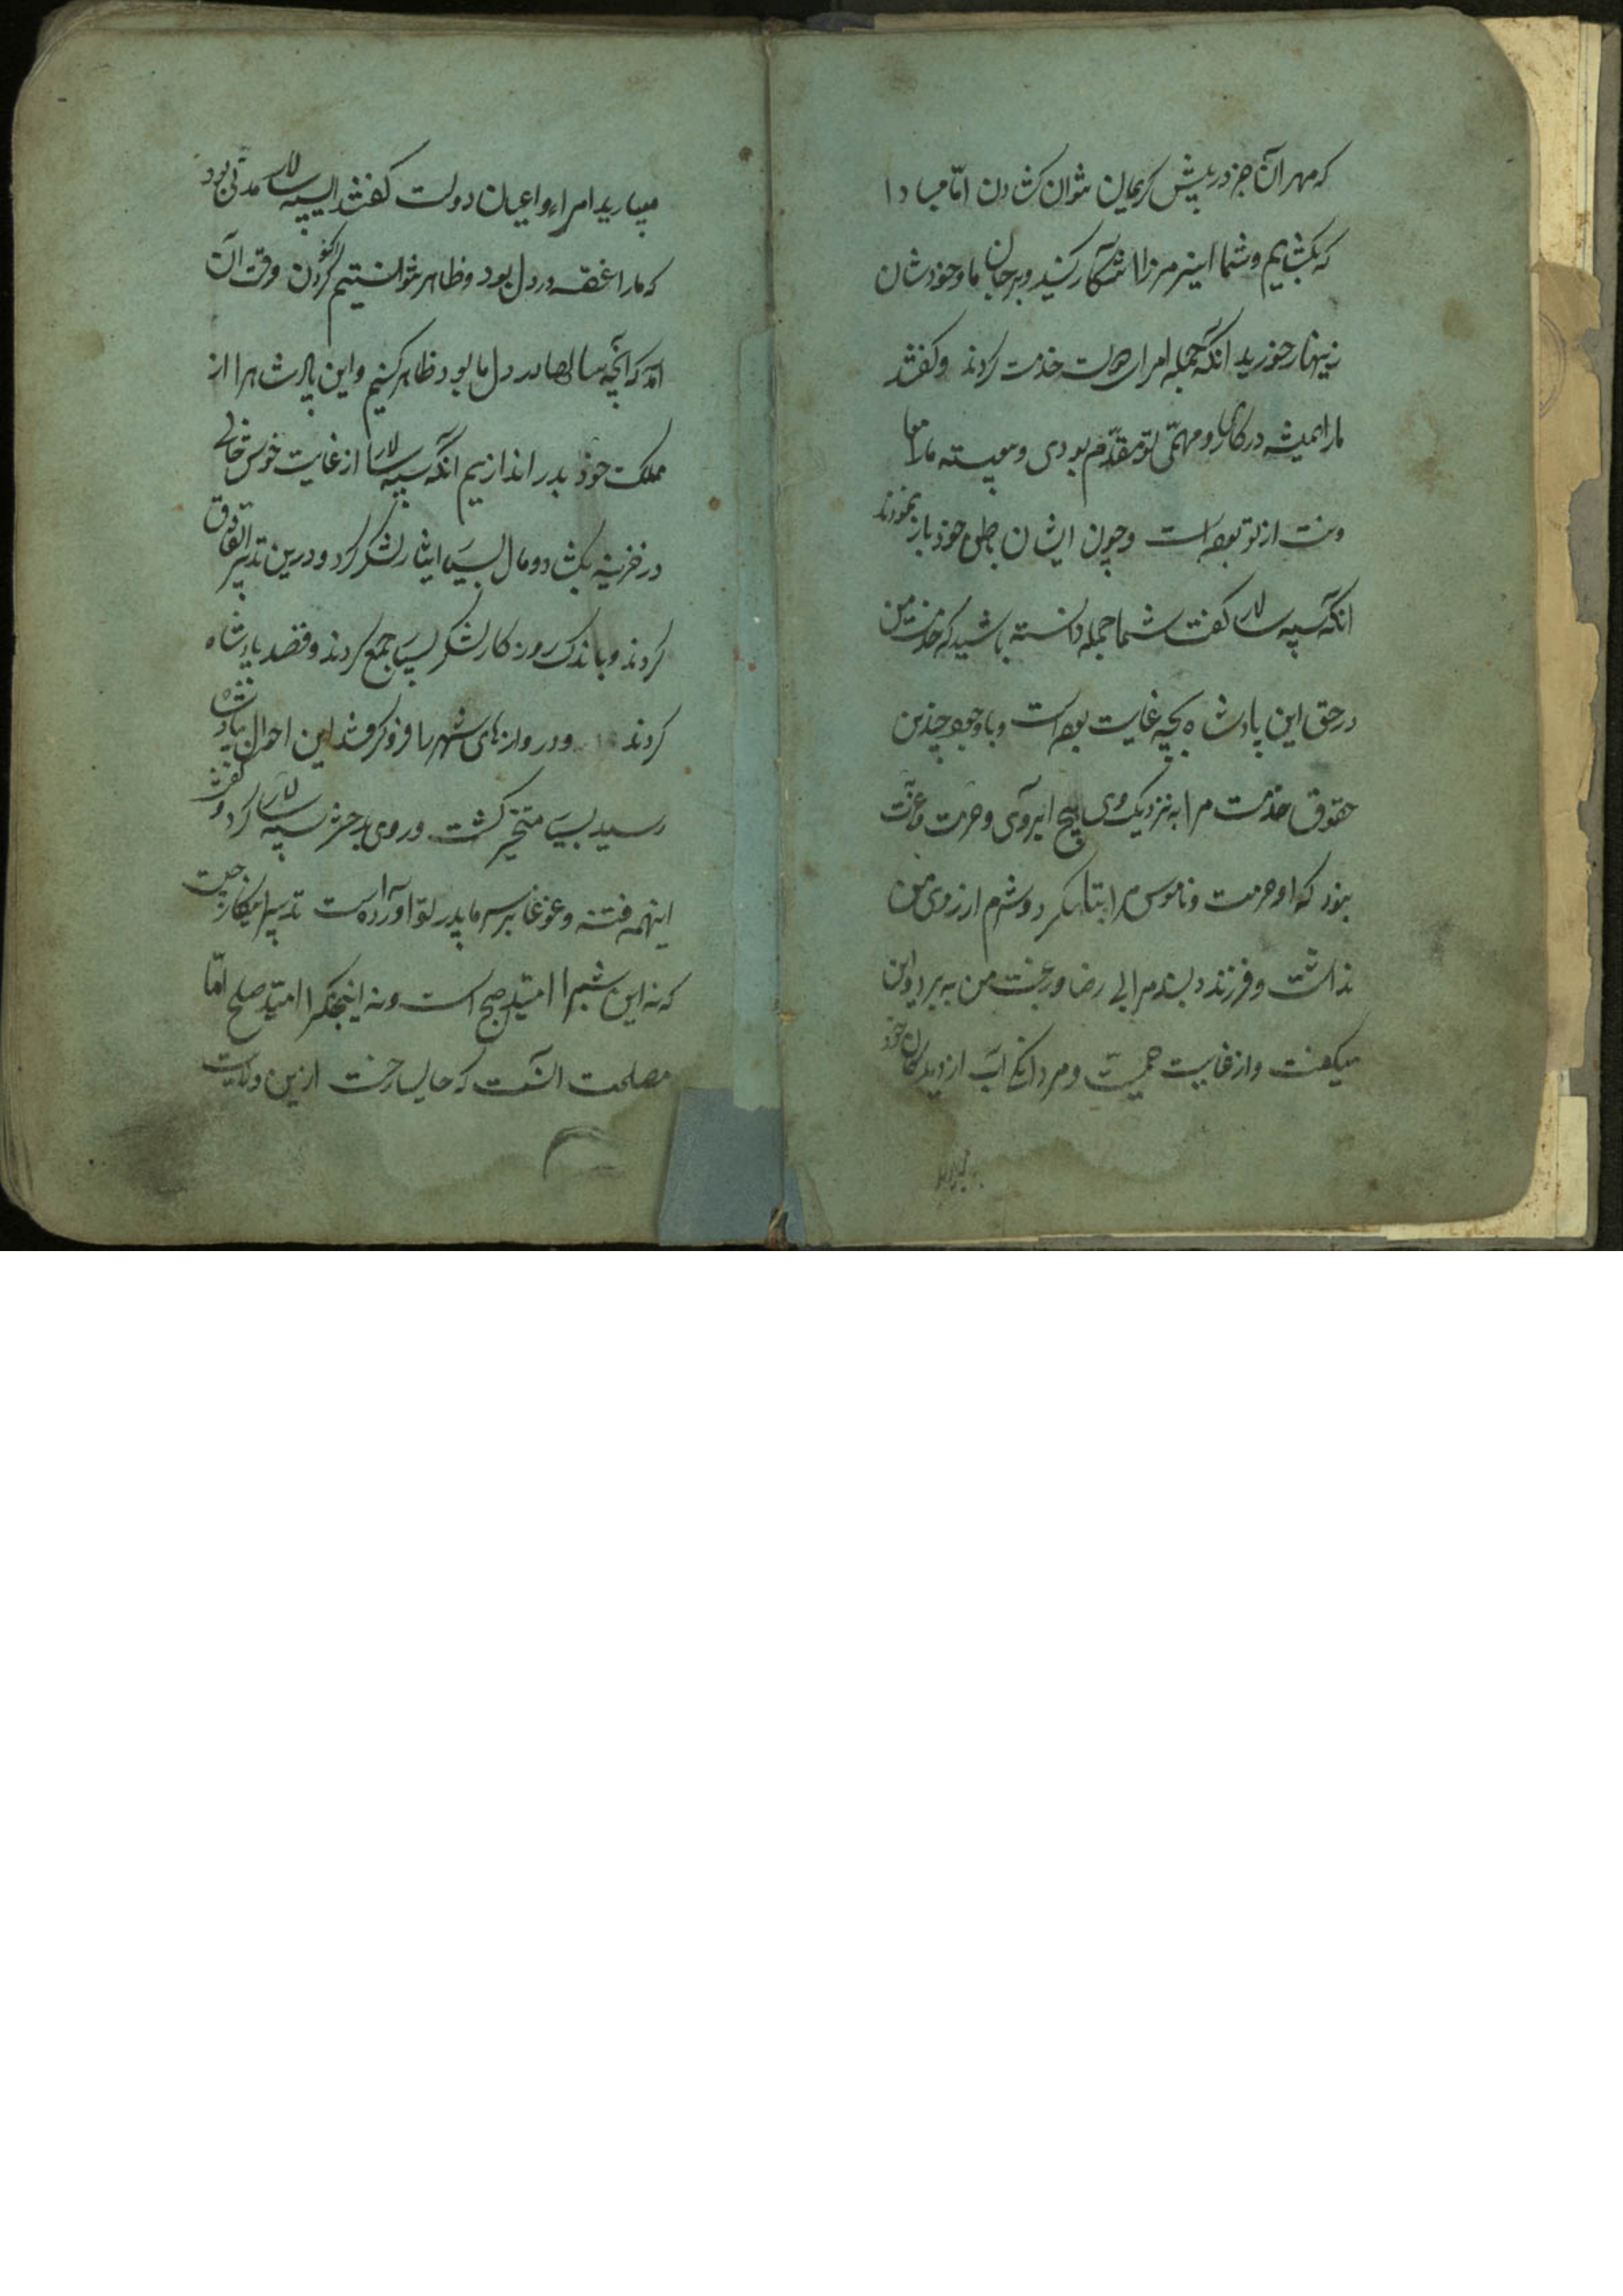 که مهر آن جز در پیش کریمان نتوان کشادن اما مبادا
که بکشایم و شما این سر مرا آشکارا کنید و بر جان ما و خودشان
زینهار خورید انگه جمله امرای دولت خدمت کردند و کفتند
ما را همیشه در کارها و مهمی تو مقدم بودی و پیوسته ما را
از تو بوده است و چون ایشان خود باز نمودند
انگه سپه سالار کفت شما جمله دانسته باشید که خدمت من
در حق این پادشاه بچه غایت بوده است و با وجود چندین
حقوق خدمت مرا به نزدیک وی هیچ ابروی و حرمت و عزت
نبود که او حرمت و ناموس مرا نکرد و شرم از روی من
نداشت و فرزند دلبند مرا بی رضا و رغبت من به برد و این
میکفت و از غایت حمیت و مردانکی آب از دیدکان خود
میبارید امرا و اعیان دولت کفتند ای سپه سالار مدتی بود
که ما را این غصه در دل بود و ظاهر نتوانستیم کردن اکنون وقت آن
آمد که آنچه سالها در دل ما بود ظاهر کنیم و این پادشاه را از
مملکت خود بدر اندازیم انگه سپه سالار از غایت خوش
در خزینه بکشاد و مال بسیار ایثار لشکر کرد و درین تدبیر اتفاق
کردند و باندک روزکار لشکر بسیار جمع کردند و قصد پادشاه
کردند و دروازهای شهر را فرو کرفتند این احوال بپادشاه
رسید بسی متحیر کشت و روی بدختر سپه سالار کرد و کفت
اینهمه فتنه و غوغا بر سر ما پدر تو آورده است تدبیر اینکار چیست
که نه این شب را امید صبح است و نه این جنک را امید صلح اما
مصلحت آنست که حالیا رخت ازین ولایت